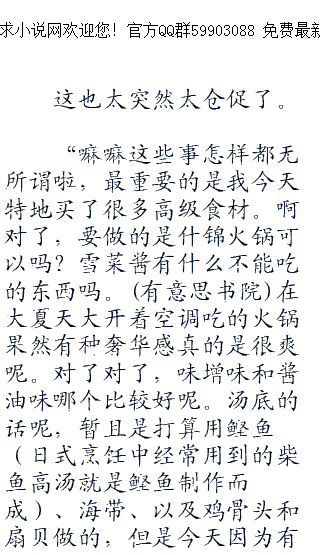 求小说网欢迎您！官方QQ群59903088 免费最新
这也太突然太仓促了。
“嘛嘛这些事怎样都无
所谓啦，最重要的是我今天
特地买了很多高级食材。啊
对了，要做的是什锦火锅可
以吗？雪菜酱有什么不能吃
的东西吗。(有意思书院)在
大夏天大开着空调吃的火锅
果然有种奢华感真的是很爽
呢。对了对了，味增味和酱
油味哪个比较好呢。汤底的
话呢，暂且是打算用鲣鱼
（日式烹饪中经常用到的柴
鱼高汤就是鲣鱼制作而
成）、海带、以及鸡骨头和
扇贝做的，但是今天因为有